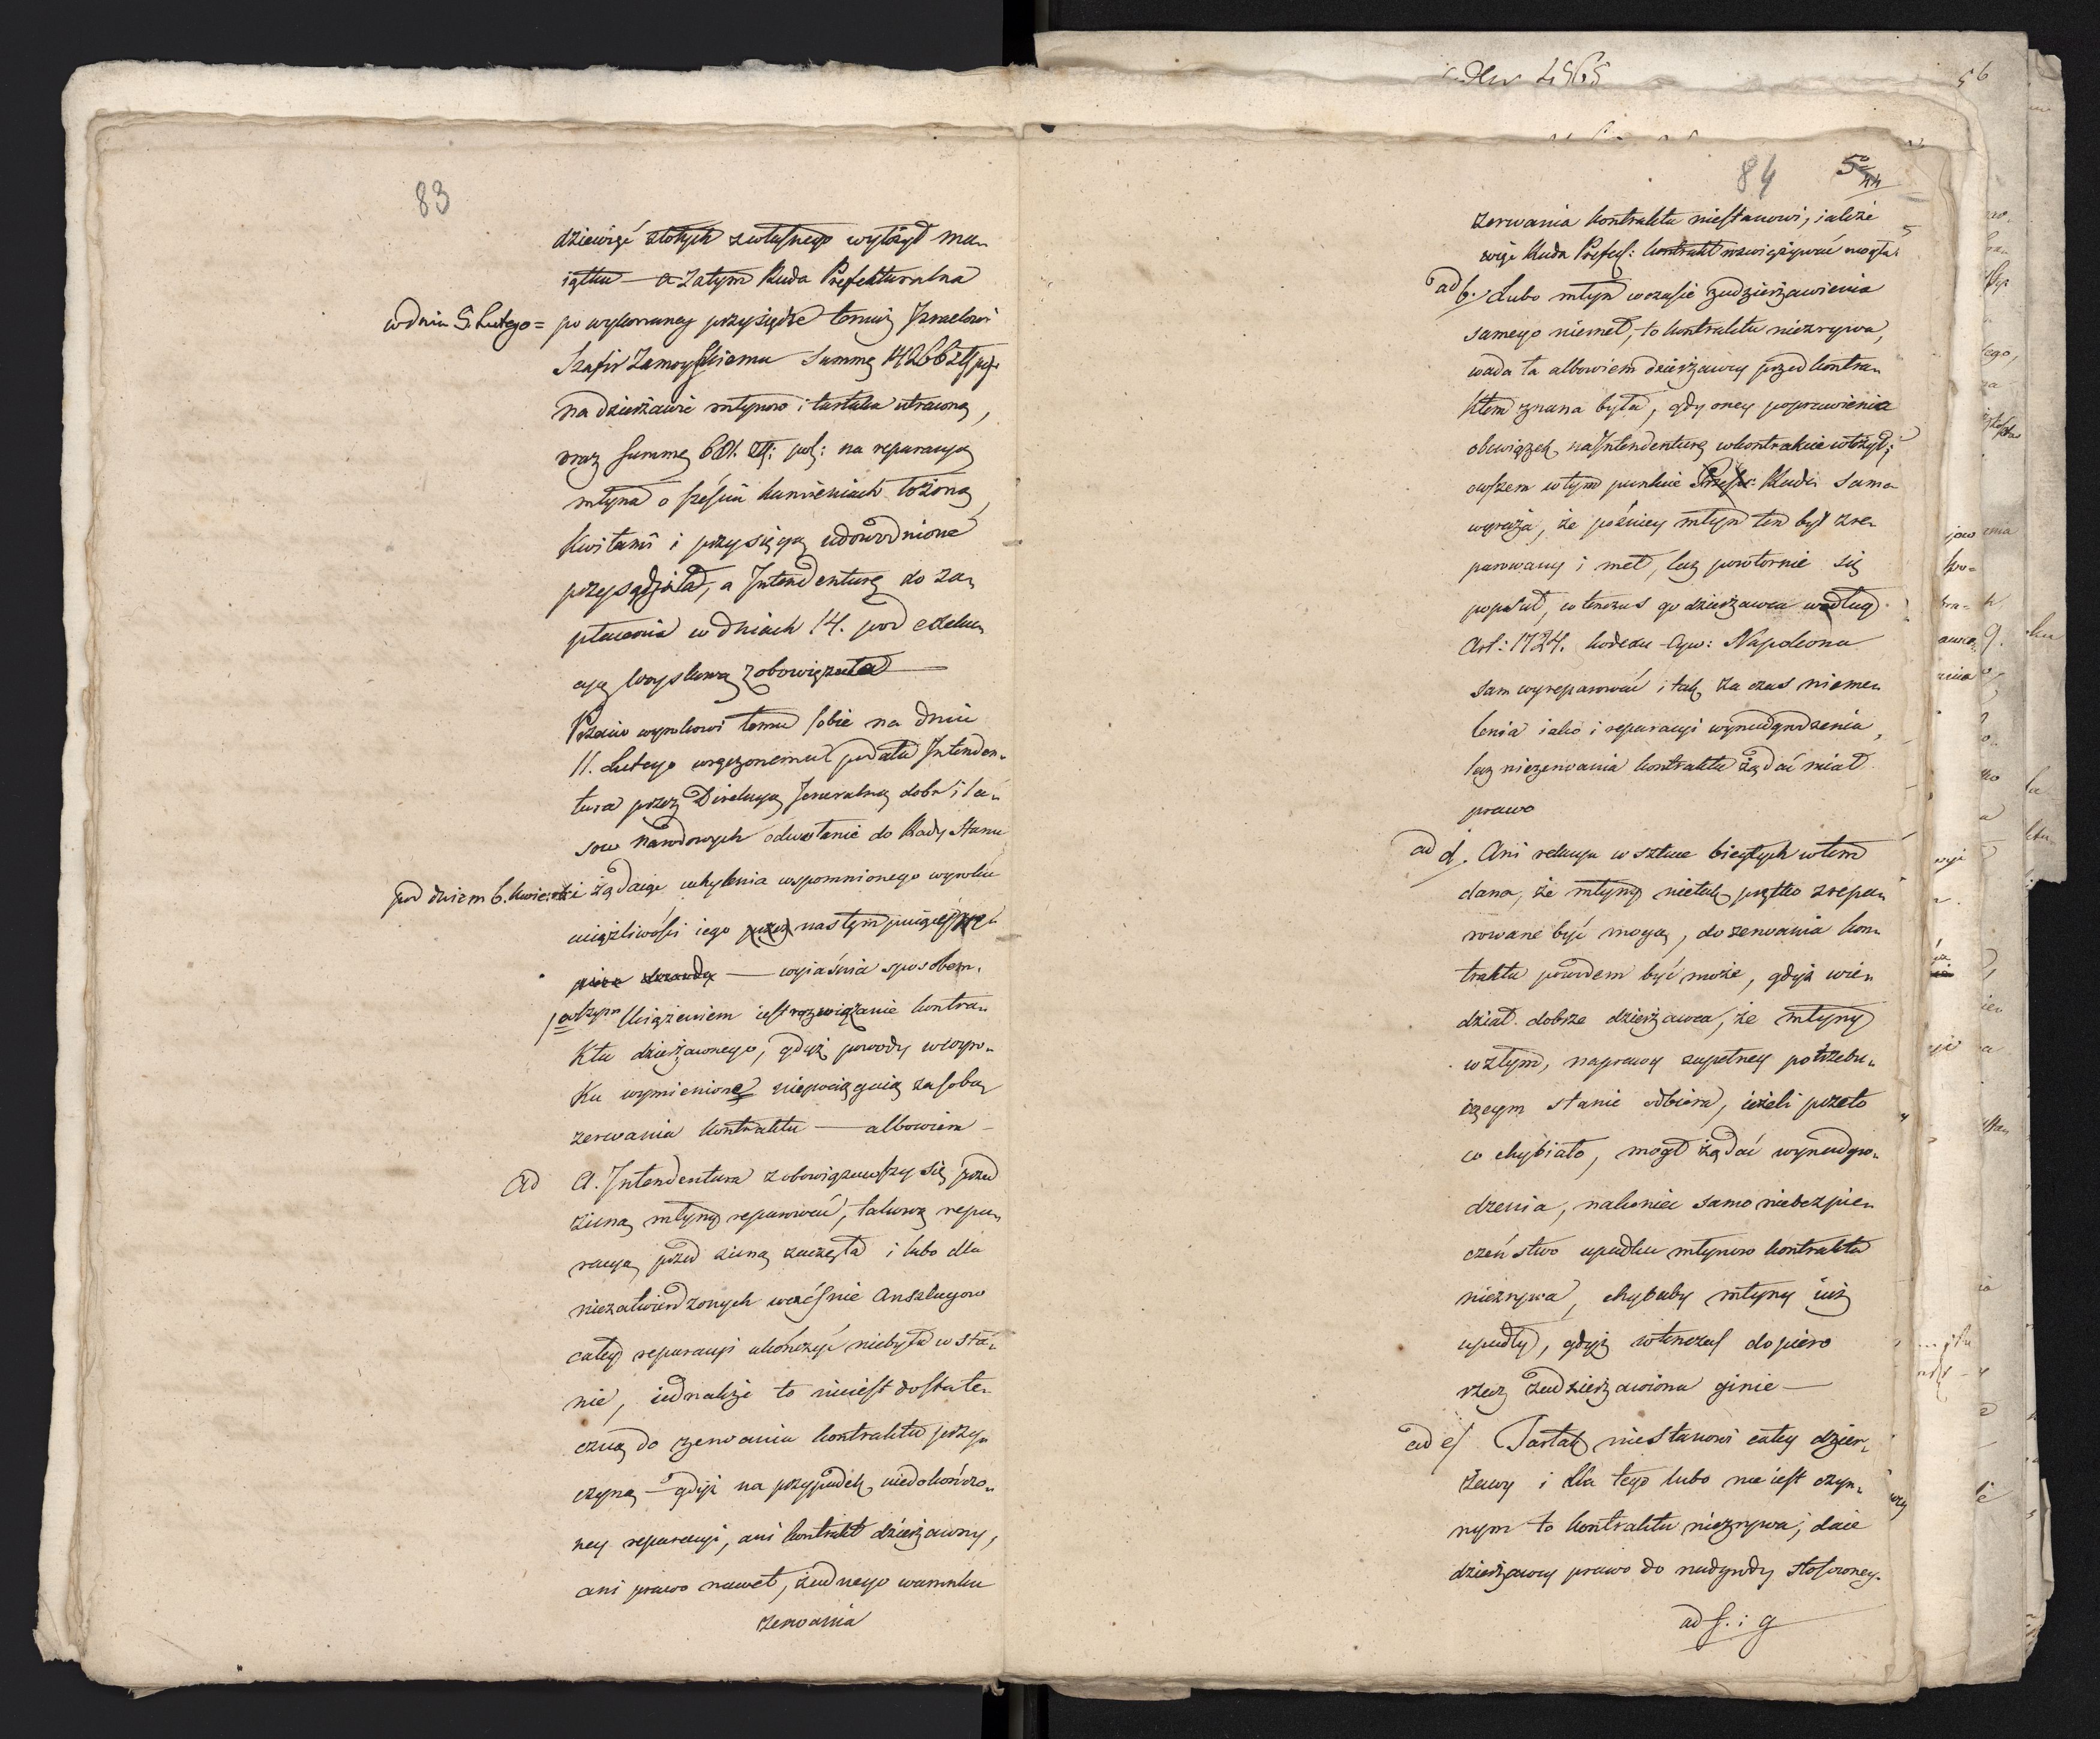 83
dziewięć złotych z własnego wyłożył ma„
iątku — a zatym Rada Prefekturalna
w dniu 5. Lutego = po wykonaney przysiędze temuż Izraelowi
Szafir Zamoyskiemu Summę 14266 złł: pol:
na dzierżawie młynow i tartaka utraconą,
oraz Summę zł: pol: na reparacyą
młyna o sześciu kamieniach łożoną,
Kwitami i przysięgą udowodnione
przysądziła, a Intendenturę do za„
płacenia w dniach 14. pod exeku„
cyą Woyskową zobowiązała —
Przeciw wyrokowi temu sobie na dniu
11. Lutego wręczonemu podała Intenden„
tura przez Direkcyą Jeneralną dobr i la„
sow Narodowych odwołanie do Rady Stanu
pod dniem 6. Kwietnia i żądaiąc uchylenia wspomnionego wyroku
uciążliwości iego przez następuiącym
— wyiaśnia sposobem.
1o Uciążeniem iest rozwiązanie kontra„
Ktu dzierżawnego, gdyż powody w wyro„
Ku wymienione niepociągaią za sobą
zerwania kontraktu — albowiem —
Ad A. Intendentura zobowiązawszy się przed
zimą młyny reparować, takową repa„
racyą przed zimą zaczęła i lubo dla
niezatwierdzonych wcześnie Anszlagow
całey reparacyi ukończyć niebyła w sta„
nie, iednakże to nieiest dostate„
czną do zerwania kontraktu przy„
czyną — gdyż na przypadek niedokończo„
ney reparacyi, ani kontrakt dzierżawny,
ani prawo nawet, żadnego warunku
zerwania
56
84
zerwania kontraktu niestanowi, iakże
więc Rada Prefek: kontrakt rozwiązywać mogła.
ad b. Lubo młyn w czasie zadzierżawienia
samego niemeł, to kontraktu niezrywa,
wada ta albowiem dzierżawcy przed kontra„
ktem znana była, gdy oney poprawienia
obowiązek na Intendenturę w kontrakcie włożył;
owszem w tym punkcie Prefek: Rada sama
wyraża, że poźniey młyn ten był zre„
parowany i meł, lecz powtornie się
popsuł, wtenczas go dzierżawca według
Art: 1724. kodexu Cyw: Napoleona
sam wyreparować i tak za czas nieme„
lenia iako i reparacyi wynadgrodzenia,
lecz niezerwania kontraktu żądać miał
prawo
ad d. Ani relacya w sztuce biegłych w tem
dana, że młyny nietak prętko zrepa„
rowane być mogą, do zerwania kon„
traktu powodem być może, gdyż wie„
dział dobrze dzierżawca, że młyny
w złym, naprawy zupełney potrzebu„
iącym stanie odbiera, ieżeli przeto
co chybiało, mogł żądać wynadgro„
dzenia, nakoniec samo niebezpie„
czeństwo upadku młynow kontraktu
niezrywa, chybaby młyny iuż
upadły, gdyż wtenczas dopiero
rzecz zadzierżawiona ginie —
ad e/ Tartak niestanowi całey dzier„
żawy i dla tego lubo nie iest czyn„
nym to kontraktu niezrywa; daie
dzierżawcy prawo do nadgrody stosowney.
ad f. i g